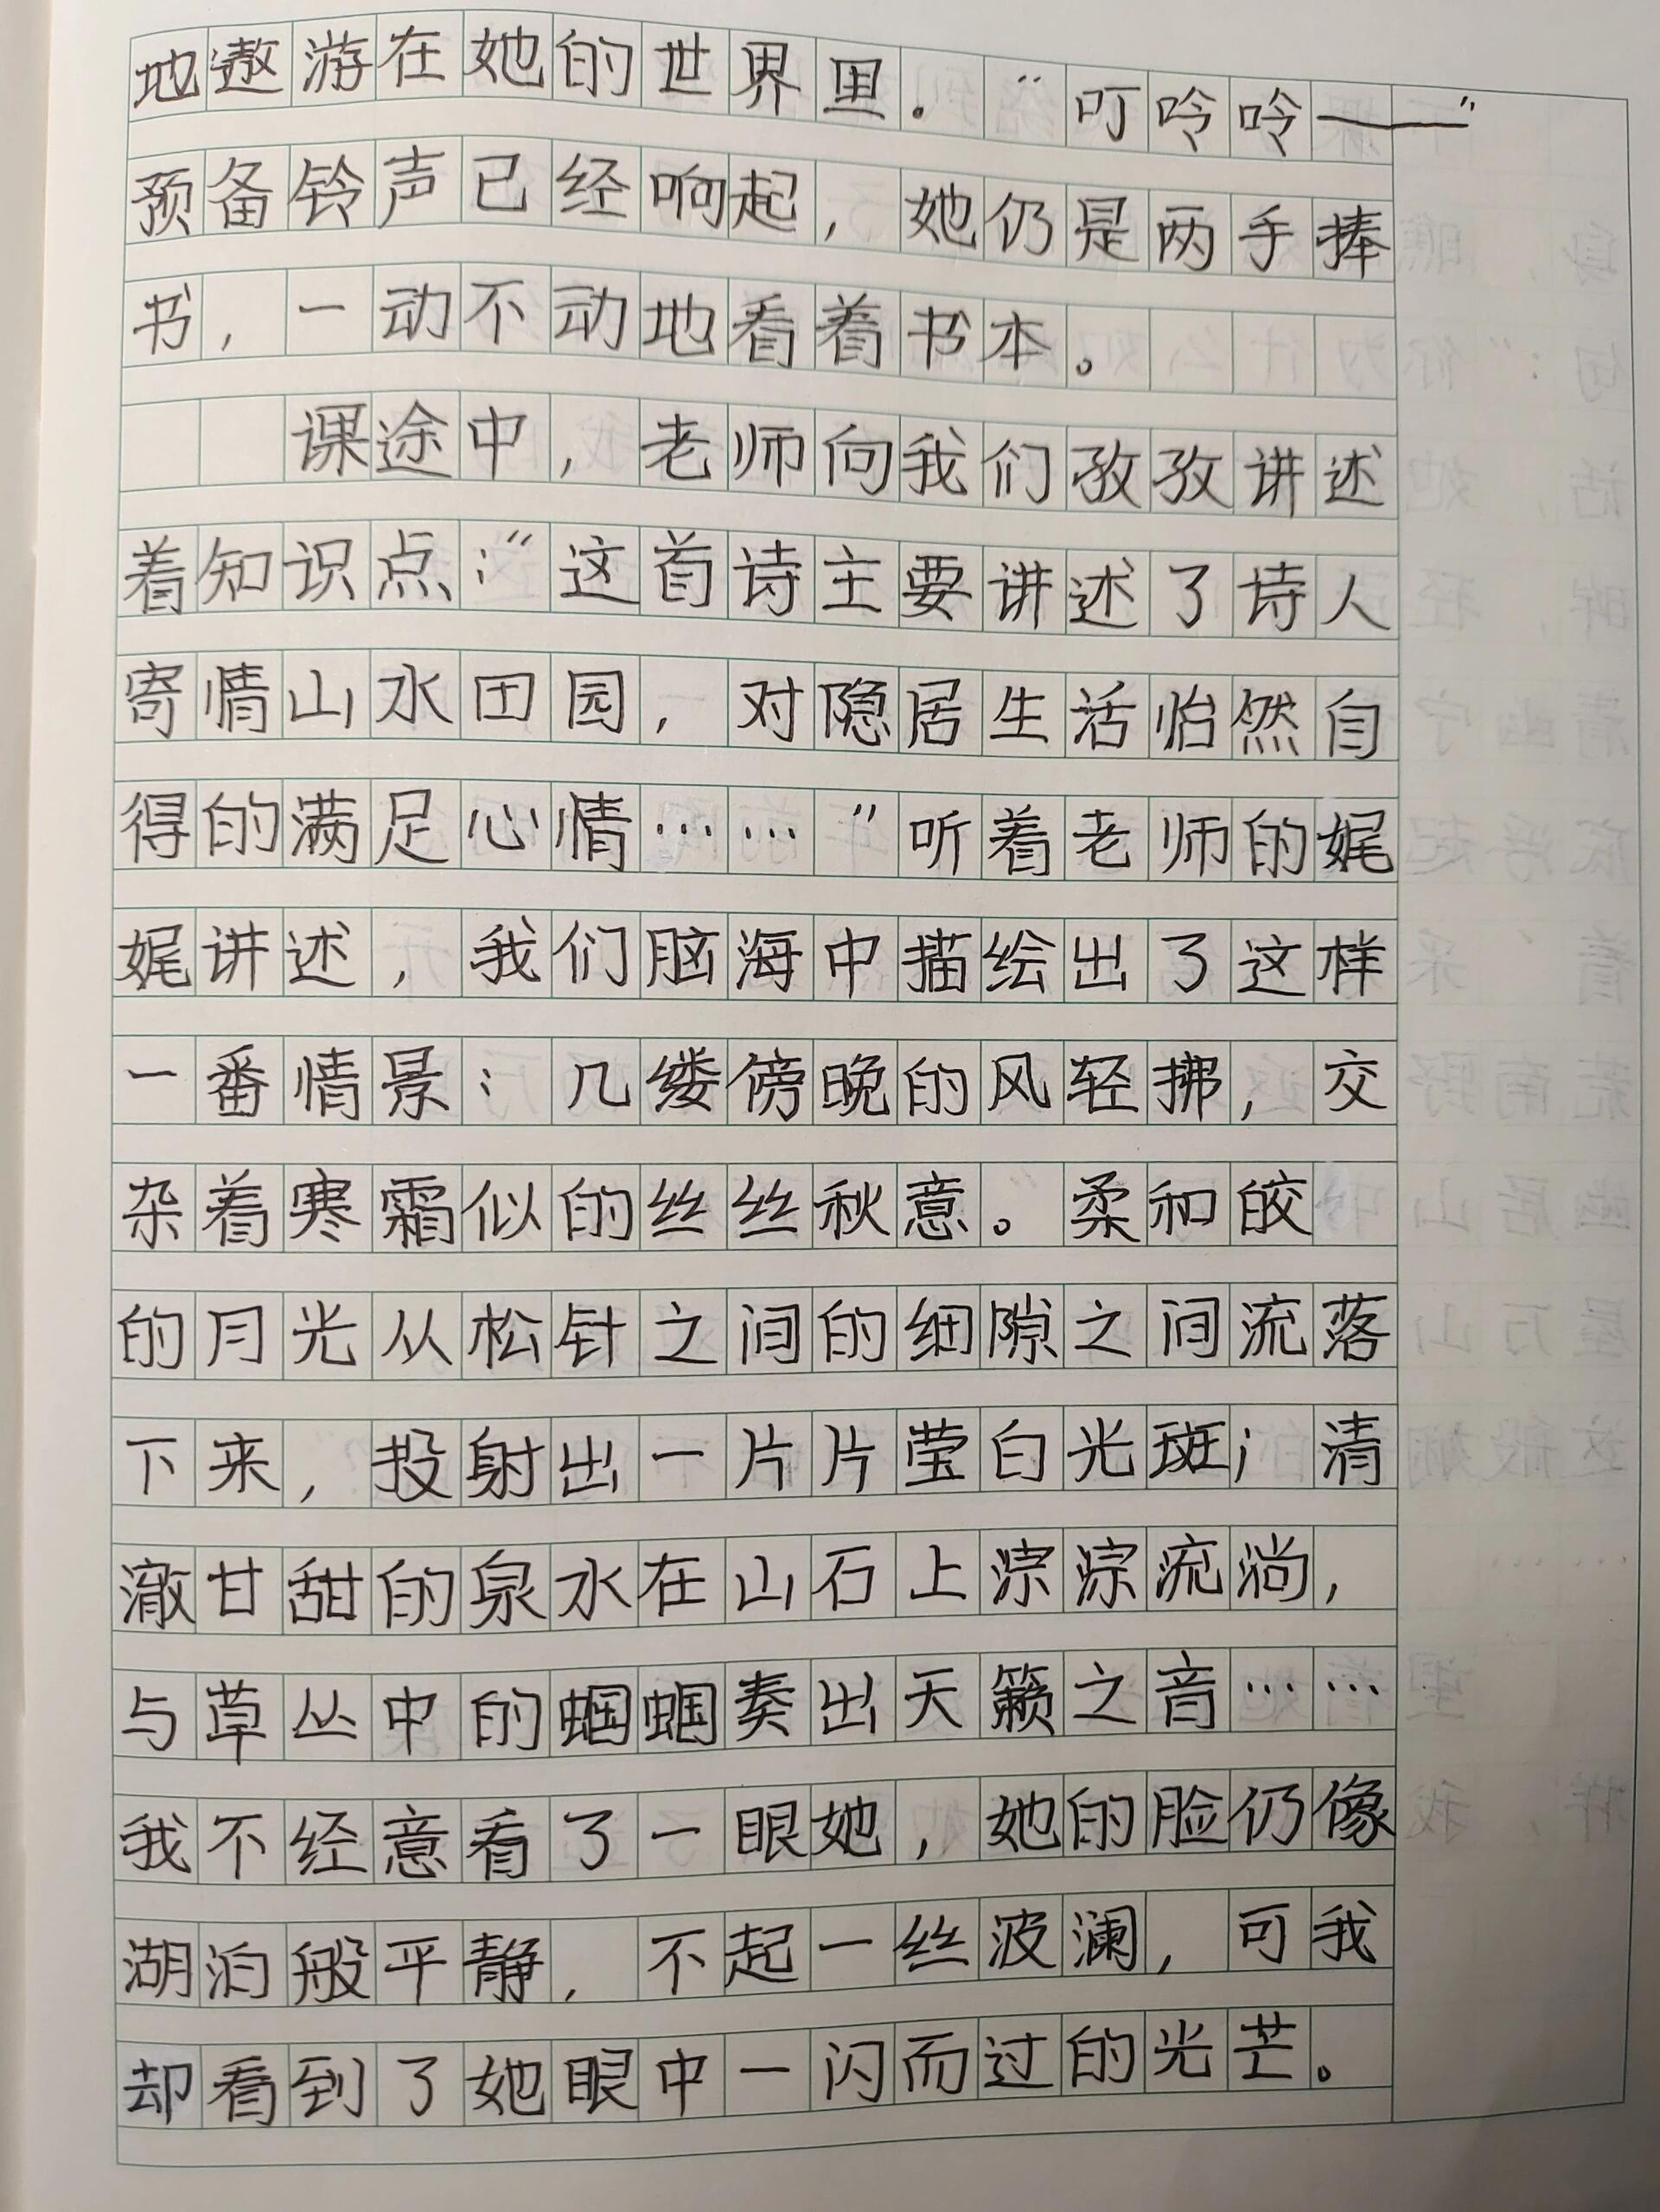 地遨游在她的世界里。“叮呤呤——”
预备铃声已经响起，她仍是两手捧
书，一动不动地看着书本。
课途中，老师向我们孜孜讲述
着知识点：“这首诗主要讲述了诗人
寄情山水田园，对隐居生活怡然自
得的满足心情……”听着老师的娓
娓讲述，我们脑海中描绘出了这样
一番情景：几缕傍晚的风轻拂，交
杂着寒霜似的丝丝秋意。柔和皎
的月光从松针之间的细隙之间流落
下来，投射出一片片莹白光斑；清
澈甘甜的泉水在山石上淙淙流淌，
与草丛中的蝈蝈奏出天籁之音……
我不经意看了一眼她，她的脸仍像
湖泊般平静，不起一丝波澜，可我
却看到了她眼中一闪而过的光芒。